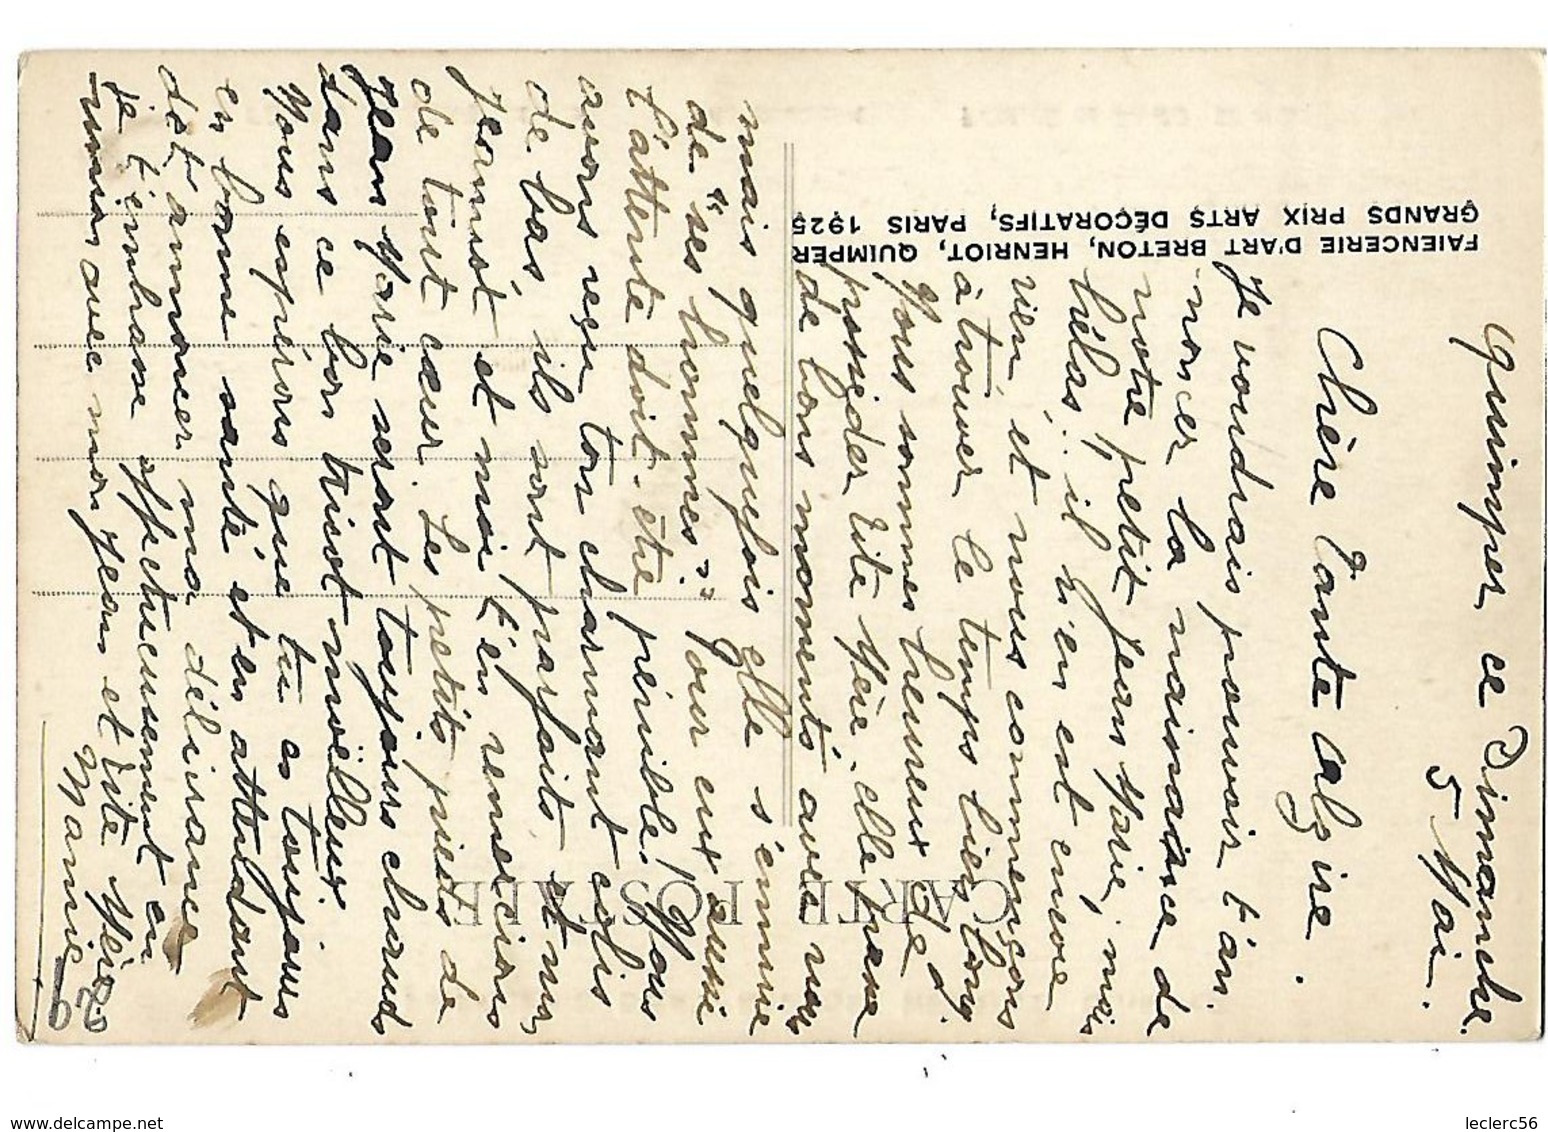 Quimper ce Dimanche
5 Mai.
Chère Tante Alzire.
Je voudrais pouvoir t'an-
-noncer la naissance de
notre petit Jean Marie, mais
hélas.. il n'en est encore
rien, et nous commençons
à trouver le temps bien long.
Nous sommes heureux de
posséder Tite Mère, elle passe
de bons moments avec nous
mais quelquefois elle s'ennuie
de "ses hommes". Pour eux aussi
l'attente doit-être pénible! Nous
avons reçu ton charmant colis
de bas, ils sont parfaits et mon
Jeannot et moi t'en remercions
de tout cœur. Les petits pieds de
Jean Marie seront toujours chauds
dans ce bon tricot moëlleux.
Nous espérons que tu es toujours
en bonne santé et en attendant
de t'annoncer ma délivrance
je t'embrasse affectueusement en
union avec mon Jean et Tite Mère.
Mannie
FAIENCERIE D'ART BRETON, HENRIOT, QUIMPER
GRANDS PRIX ARTS DÉCORATIFS, PARIS 1925
CARTE POSTALE
www.delcampe.net
leclerc56